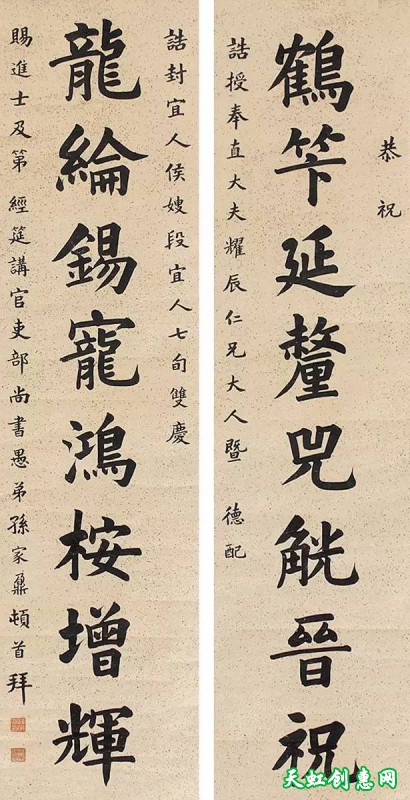 恭祝
鶴筭延釐兕觥晉祝
誥授奉直大夫耀辰仁兄大人暨 德配
誥封宜人侯嫂段宜人七旬雙慶
龍綸錫寵鴻桉增輝
賜進士及第 經筵講官吏部尚書愚弟孫家鼐頓首拜
天虹创惠网